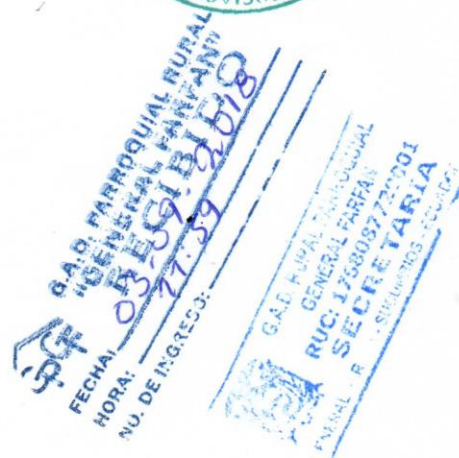 G.A.D. PARROQUIAL RURAL
"GENERAL FARFAN"
RECIBIDO
FECHA: 03-09-2018
HORA: 11:39
NO. DE INGRESO:
G.A.D. RURAL PARROQUIAL
GENERAL FARFAN
RUC: 1768087720001
SECRETARIA
SUCUMBIOS - ECUADOR